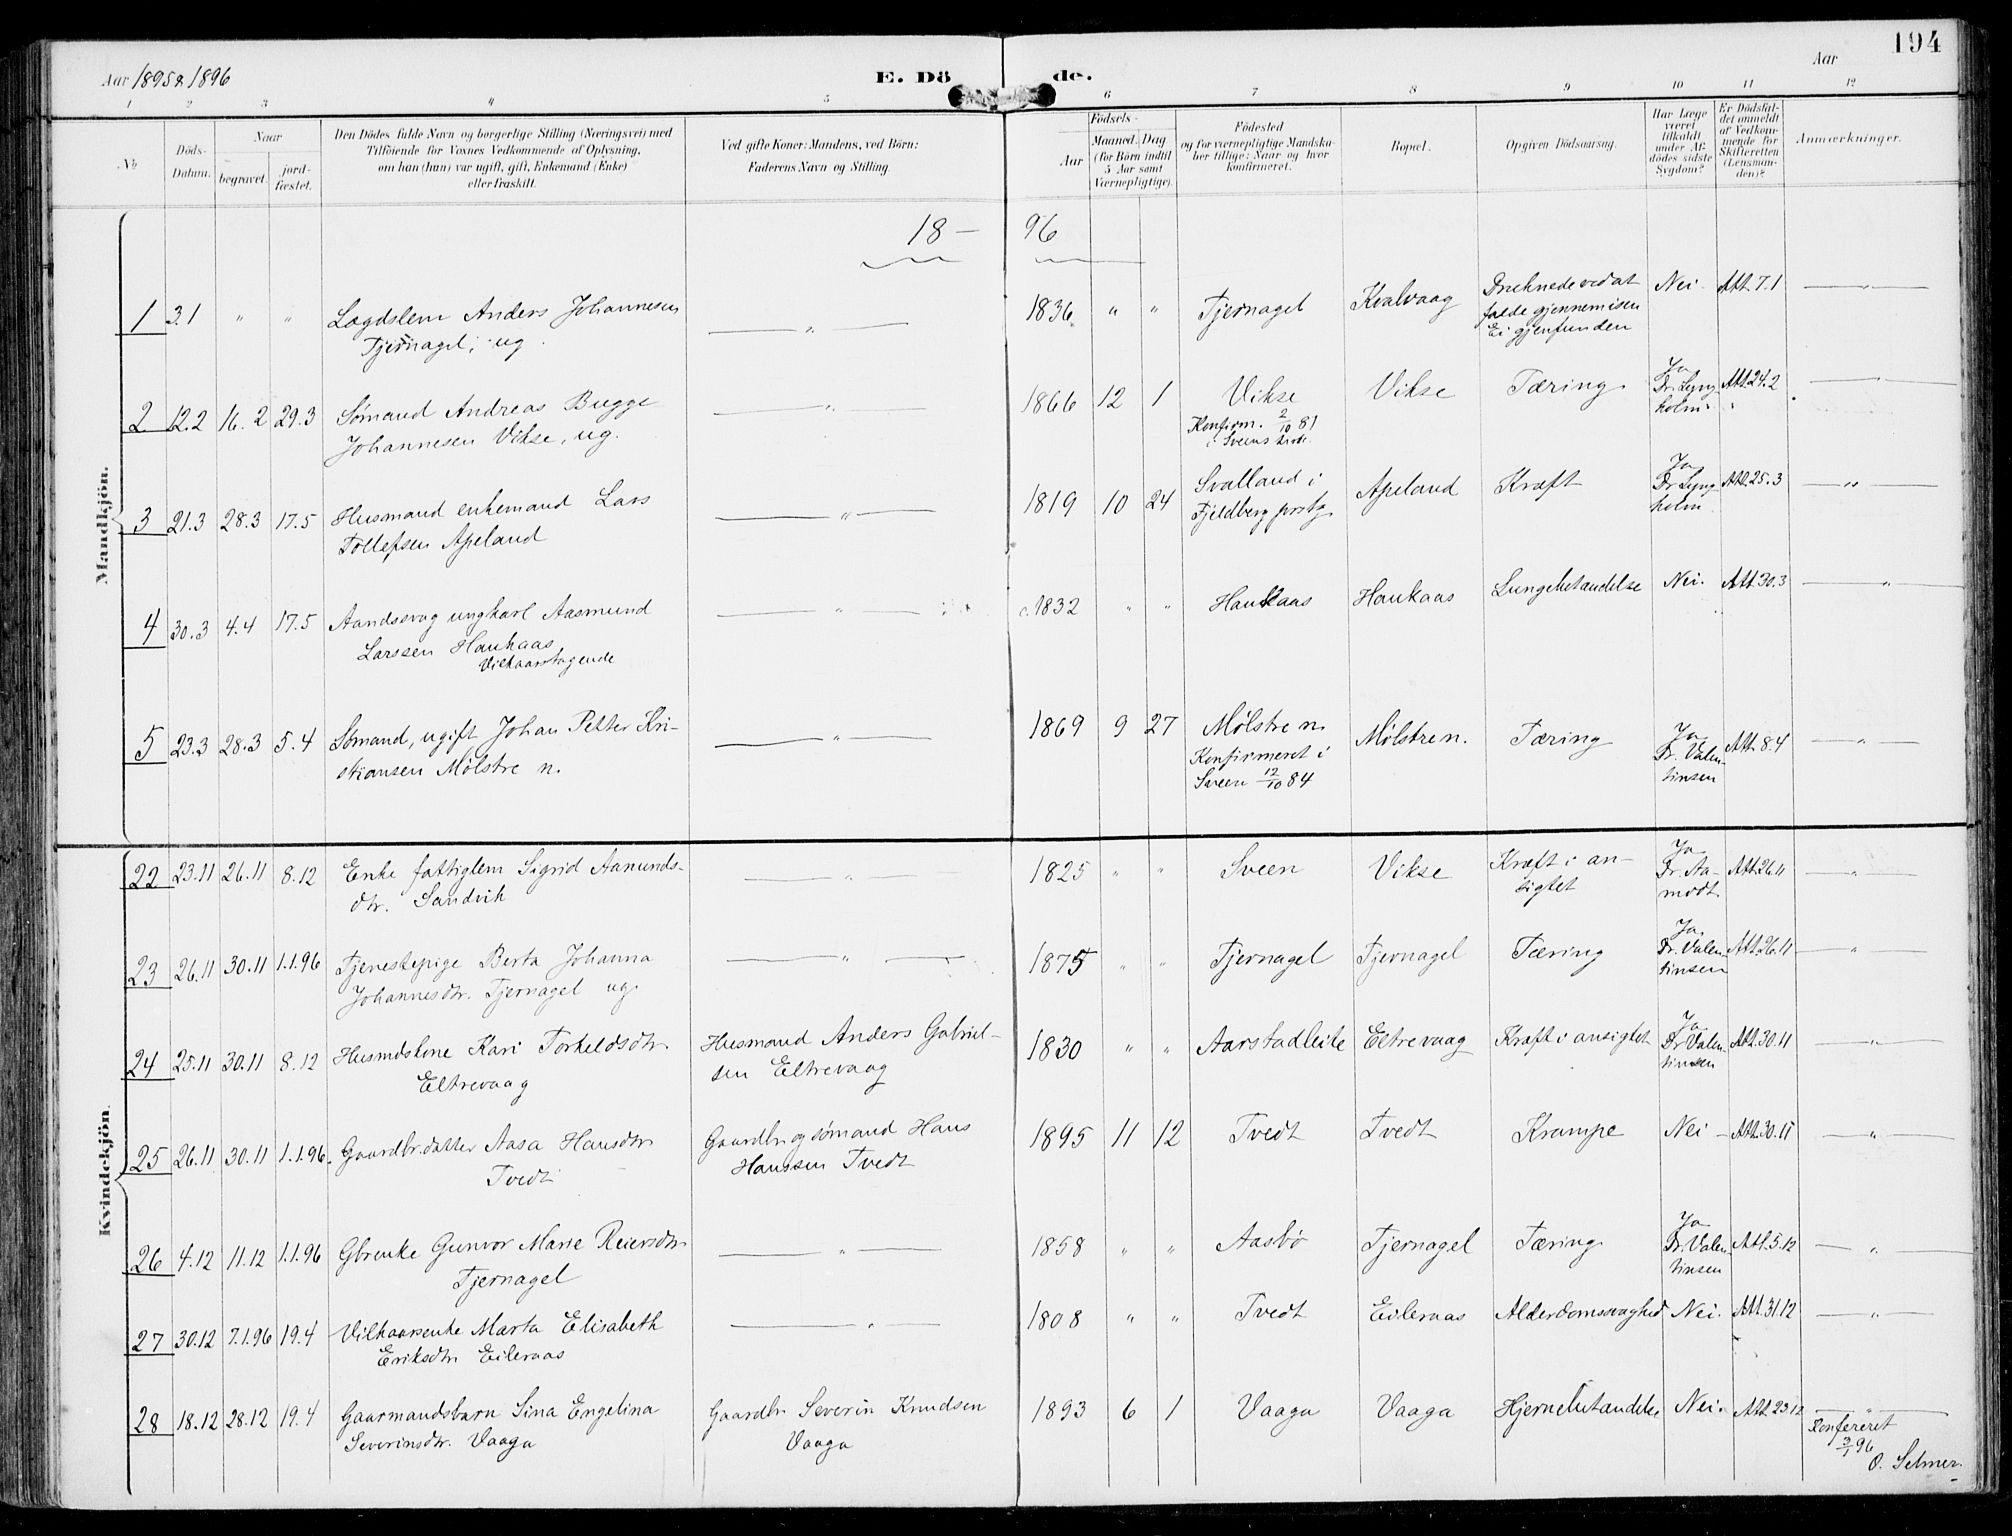 194
Aar 1895 & 1896
E. Dö de.
Aar
1 2 3 " 5 6 7 8 9 10 11 12
No
Döds-Datum.
Naar begravet. jord-fæstet.
Den Dödes fulde Navn og borgerlige Stilling (Næringsvei) med
Tilföiende for Voxnes Vedkommende af Oplysning,
om han (hun) var ugift, gift, Enkemand (Enke)
eller fraskilt.
Ved gifte Koner: Mandens, ved Börn:
Faderens Navn og Stilling.
Födsels-
Aar
Maaned. Dag
(for Börn indtil
5 Aar samt
Værnepligtige).
Födested
og for værnepligtige Mandska-
ber tillige: Naar og hvor
konfirmeret.
Bopæl.
Opgiven Dödsaarsag.
Har Læge
været
tilkaldt
under Af-
dödes sidste
Sygdom?
Er Dödsfal-
det anmeldt
af Vedkom-
mende for
Skifteretten
(Lensman-
den)?
Anmærkninger.
Mandkjön.
18 — 96
1 3.1 " " Lægdslem Anders Johannesen — " — 1836 " " Tjernagel Kvalvaag Druknede ved at Nei. Att. 7.1 — " —
Tjernagel, ug. falde gjennem isen
Ei gjenfunden
2 12.2 16.2 29.3 Sømand Andreas Bugge — " — 1866 12 1 Vikse Vikse Tæring Ja Att. 24.2 — " —
Johannesen Vikse, ug. Konfirm. 2/10 81 Dr. Lyng-
i Sveens kirke. holm
3 21.3 28.3 17.5 Husmand enkemand Lars — " — 1819 10 24 Svalland i Apeland Kræft Ja Att. 25.3 — " —
Tollefsen Apeland Fjeldberg prstg. Dr. Lyng-
holm
4 30.3 4.4 17.5 Aandssvag ungkarl Aasmund — " — c. 1832 " " Haukaas Haukaas Lungebetændelse Nei. Att. 30.3 — " —
Larssen Haukaas
Vilkaarstagende
5 23.3 28.3 5.4 Sømand, ugift Johan Petter Kri- — " — 1869 9 27 Mølstre n. Mølstre n. Tæring Ja Att. 8.4 — " —
stiansen Mølstre n. Konfirmeret i Dr. Valen-
Sveen 12/10 84 tinsen
Kvindekjön.
22 23.11 26.11 8.12 Enke fattiglem Sigrid Aamunds- — " — 1825 " " Sveen Vikse Kræft i an- Ja Att. 26.11 — " —
dtr. Sandvik sigtet Dr. Aa-
modt
23 26.11 30.11 1.1.96 Tjenestepige Berta Johanna — " — 1875 " " Tjernagel Tjernagel Tæring Ja Att. 26.11 — " —
Johannesdtr. Tjernagel ug. Dr. Valen-
tinsen
24 25.11 30.11 8.12 Husmdskone Kari Torkeldsdtr. Husmand Anders Gabriel- 1830 " " Aarstadleite Eltrevaag Kræft i ansigtet Ja Att. 30.11 — " —
Eltrevaag sen Eltrevaag Dr. Valen-
tinsen
25 26.11 30.11 1.1.96 Gaardbr. datter Aasa Hansdtr Gaardbr. og sømand Hans 1895 11 12 Tvedt Tvedt Krampe Nei — Att. 30.11 — " —
Tvedt Hanssen Tvedt
26 4.12 11.12 1.1.96 Gbrenke Gunvor Marie Reiersdtr. — " — 1858 " " Aasbø Tjernagel Tæring Ja Att. 5.12 — " —
Tjernagel Dr. Valen-
tinsen
27 30.12 7.1.96 19.4 Vilkaarsenke Marta Elisabeth — " — 1808 " " Tvedt Eileraas Alderdomssvaghed Nei. Att. 31.12 — " —
Eriksdtr. Eileraas
28 18.12 28.12 19.4 Gaarmandsbarn Sina Engelina Gaardbr. Severin Knudsen 1893 6 1 Vaaga Vaaga Hjernebetændelse Nei. Att. 23.12 — " —
Severinsdtr. Vaaga Vaaga
Konfereret
3/1 96
O. Selmer.